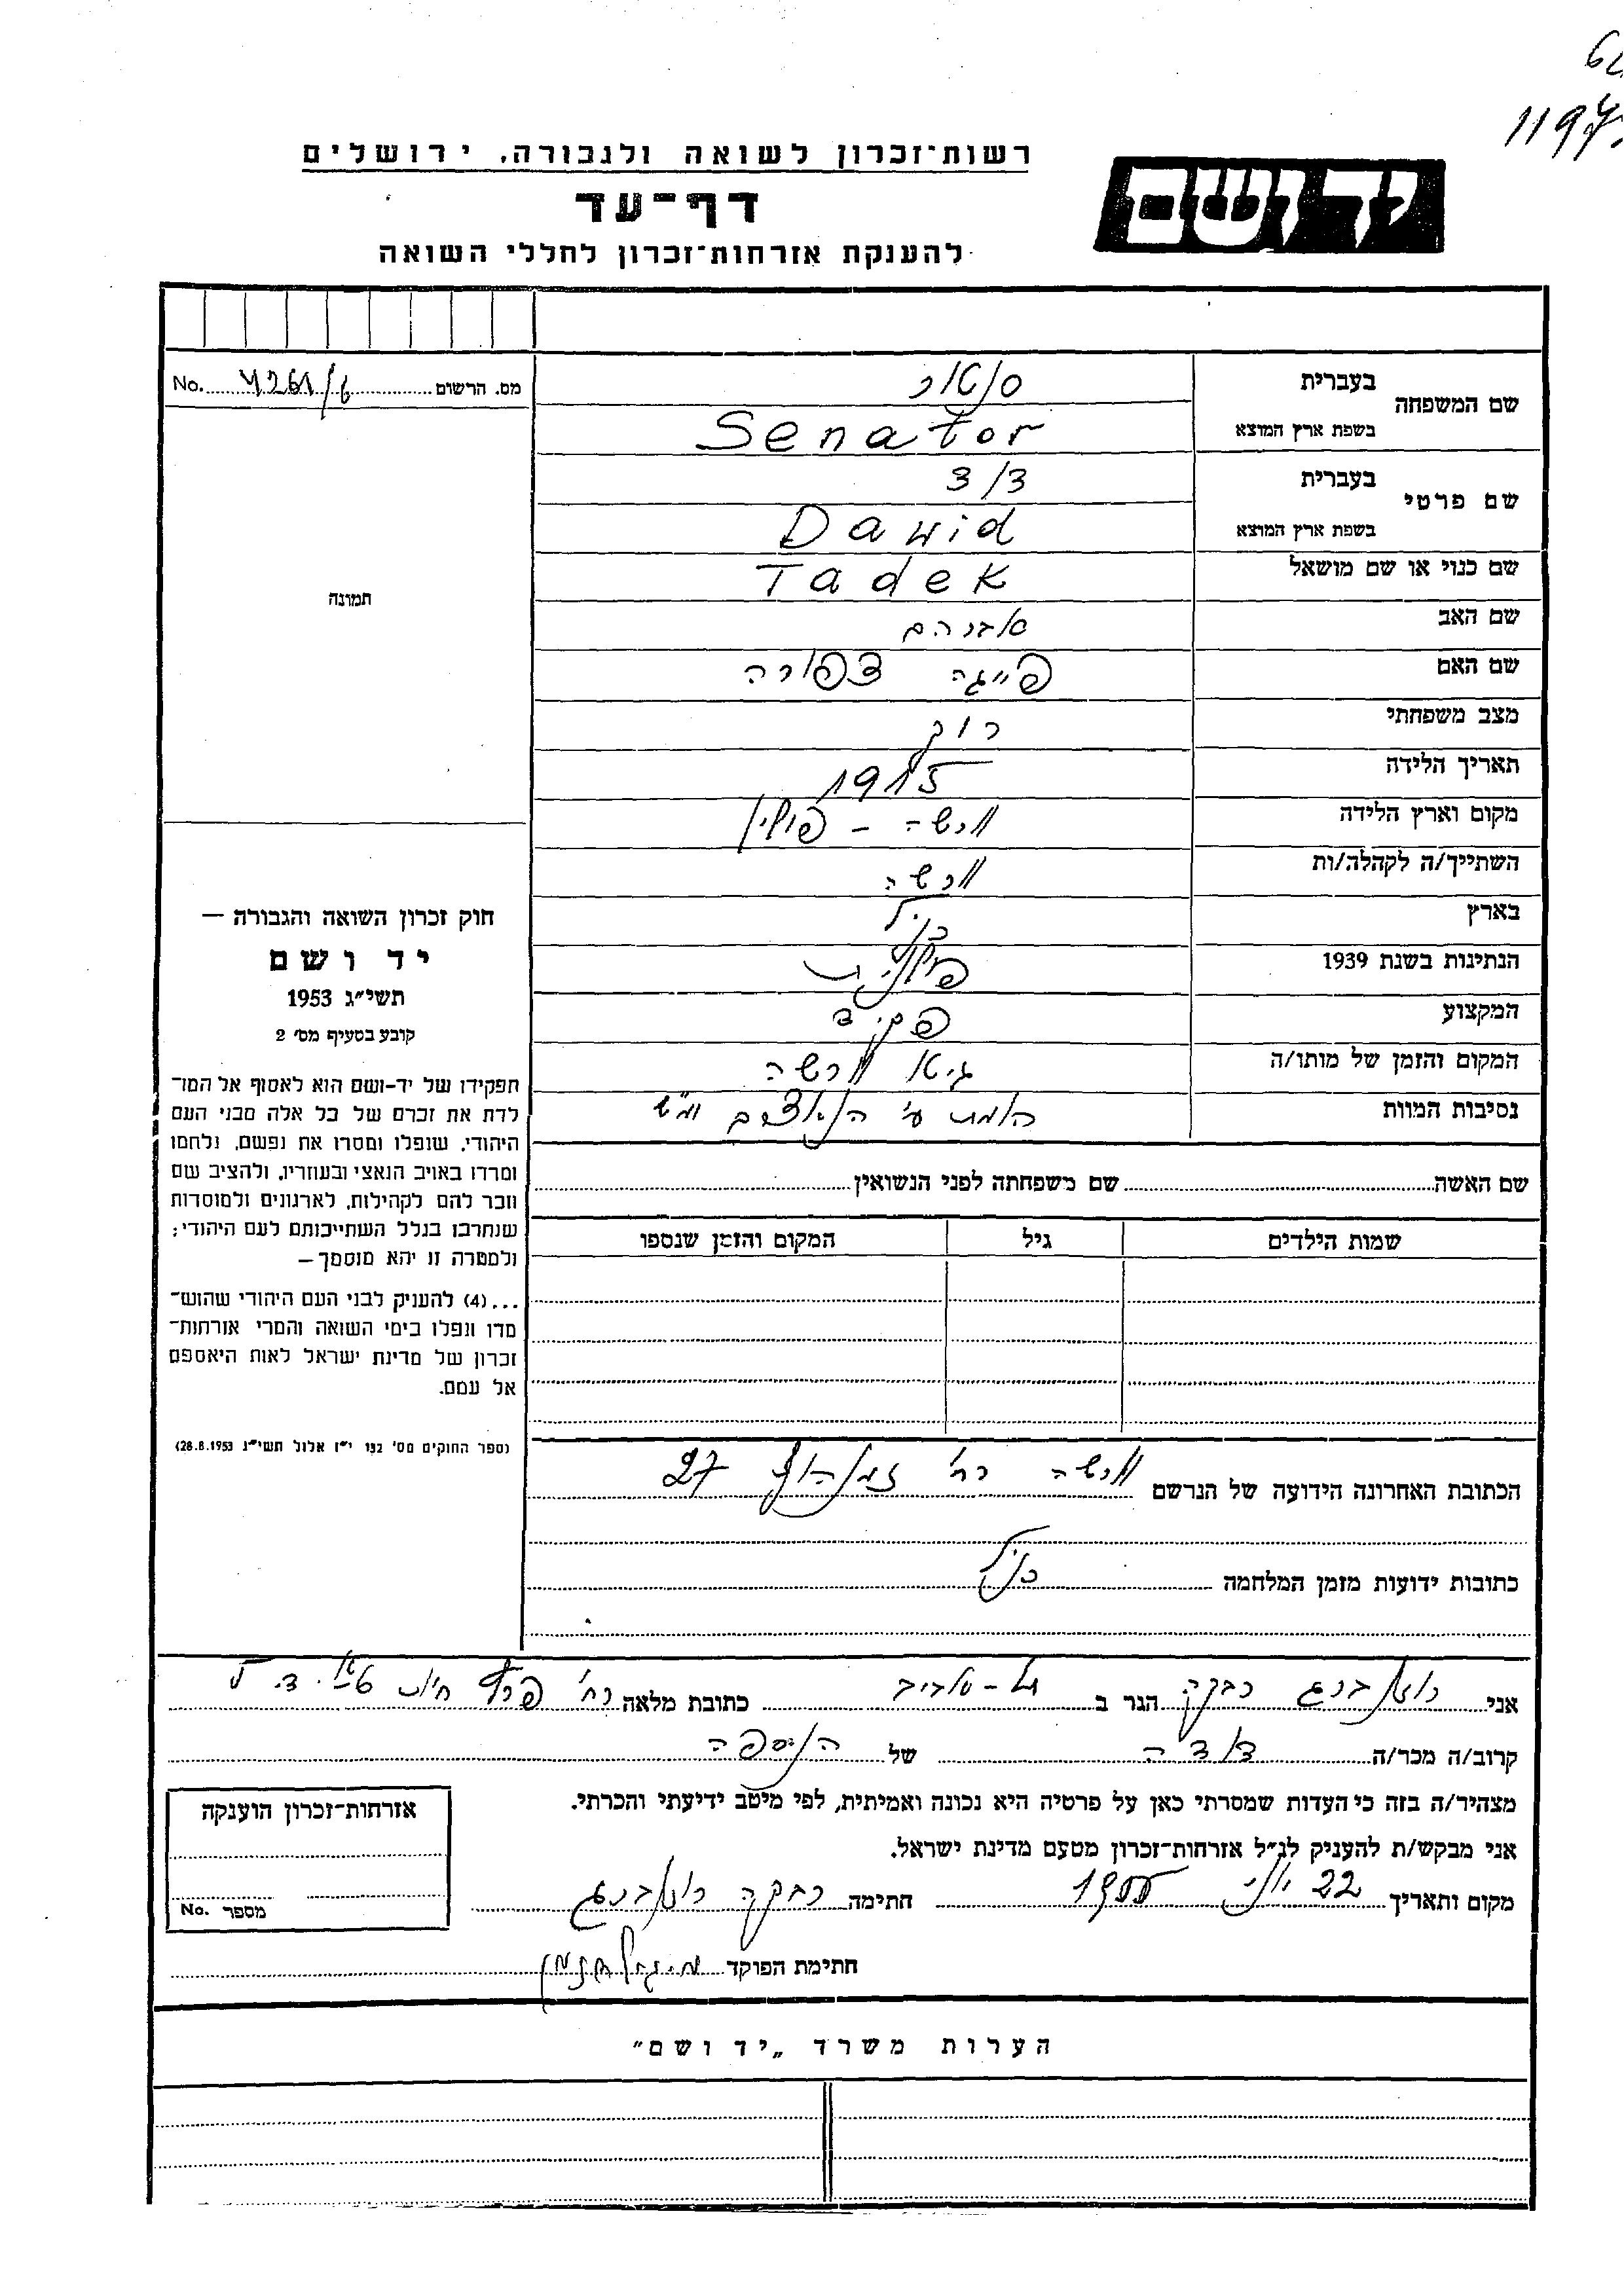 1197
רשות־זכרון לשואה ולגבורה, ירושלים
יד ושם
דף־עד
להענקת אזרחות־זכרון לחללי השואה
מס. הרשום No.
שם המשפחה
בעברית
בשפת ארץ המוצא Senator
שם פרטי
בעברית דוד
בשפת ארץ המוצא Dawid
שם כנוי או שם מושאל Tadek
שם האב אברהם
שם האם פייגה צפורה
מצב משפחתי רוק
תאריך הלידה 1915
מקום וארץ הלידה ורשה – פולין
השתייך/ה לקהלה/ות ורשה
בארץ כנ"ל
הנתינות בשנת 1939 פולנית
המקצוע פקיד
המקום והזמן של מותו/ה גיטו ורשה
נסיבות המוות הומת ע"י הנאצים ימ"ש
תמונה
חוק זכרון השואה והגבורה —
יד ושם
תשי״ג 1953
קובע בסעיף מס׳ 2
תפקידו של יד-ושם הוא לאסוף אל המו־
לדת את זכרם של כל אלה מבני העם
היהודי, שנפלו ומסרו את נפשם, נלחמו
ומרדו באויב הנאצי ובעוזריו, ולהציב שם
וזכר להם לקהילות, לארגונים ולמוסדות
שנחרבו בגלל השתייכותם לעם היהודי;
ולמטרה זו יהא מוסמך —
...(4) להעניק לבני העם היהודי שהוש־
מדו ונפלו בימי השואה והמרי אזרחות־
זכרון של מדינת ישראל לאות היאספם
אל עמם.
(ספר החוקים מס׳ 132 י״ז אלול תשי״ג 28.8.1953)
שם האשה שם משפחתה לפני הנשואין
שמות הילדים גיל המקום והזמן שנספו
הכתובת האחרונה הידועה של הנרשם ורשה רח' זמנהוף 27
כתובות ידועות מזמן המלחמה כנ"ל
אני רוזנברג רבקה הגר ב תל-אביב כתובת מלאה רח' פרופ'
קרוב/ה מכר/ה דודה של הניספה
מצהיר/ה בזה כי העדות שמסרתי כאן על פרטיה היא נכונה ואמיתית, לפי מיטב ידיעתי והכרתי.
אני מבקש/ת להעניק לנ״ל אזרחות־זכרון מטעם מדינת ישראל.
מקום ותאריך 22 יוני 1955 חתימה רבקה רוזנברג
חתימת הפוקד
אזרחות־זכרון הוענקה
מספר No.
הערות משרד „יד ושם״